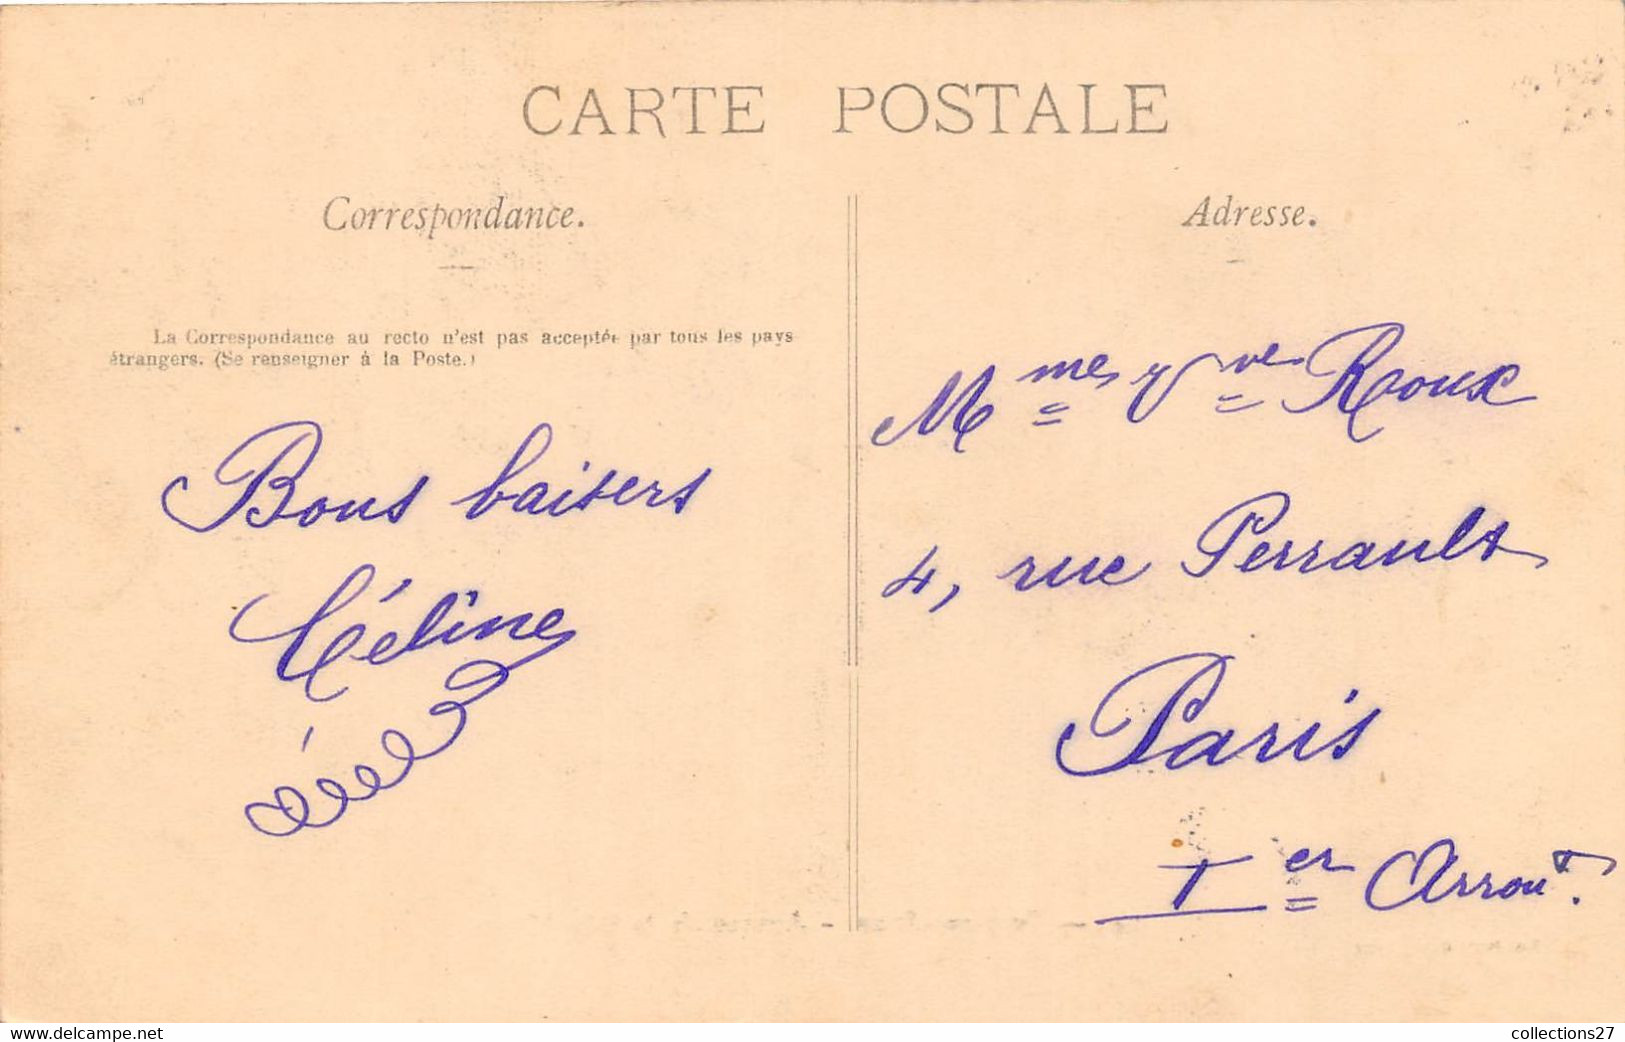 CARTE POSTALE
Correspondance.
La Correspondance au recto n'est pas acceptée par tous les pays
étrangers. (Se renseigner à la Poste.)
Bons baisers
Céline
Adresse.
Mme Vve Roux
4, rue Perrault
Paris
Ier Arront.
www.delcampe.net
collections27